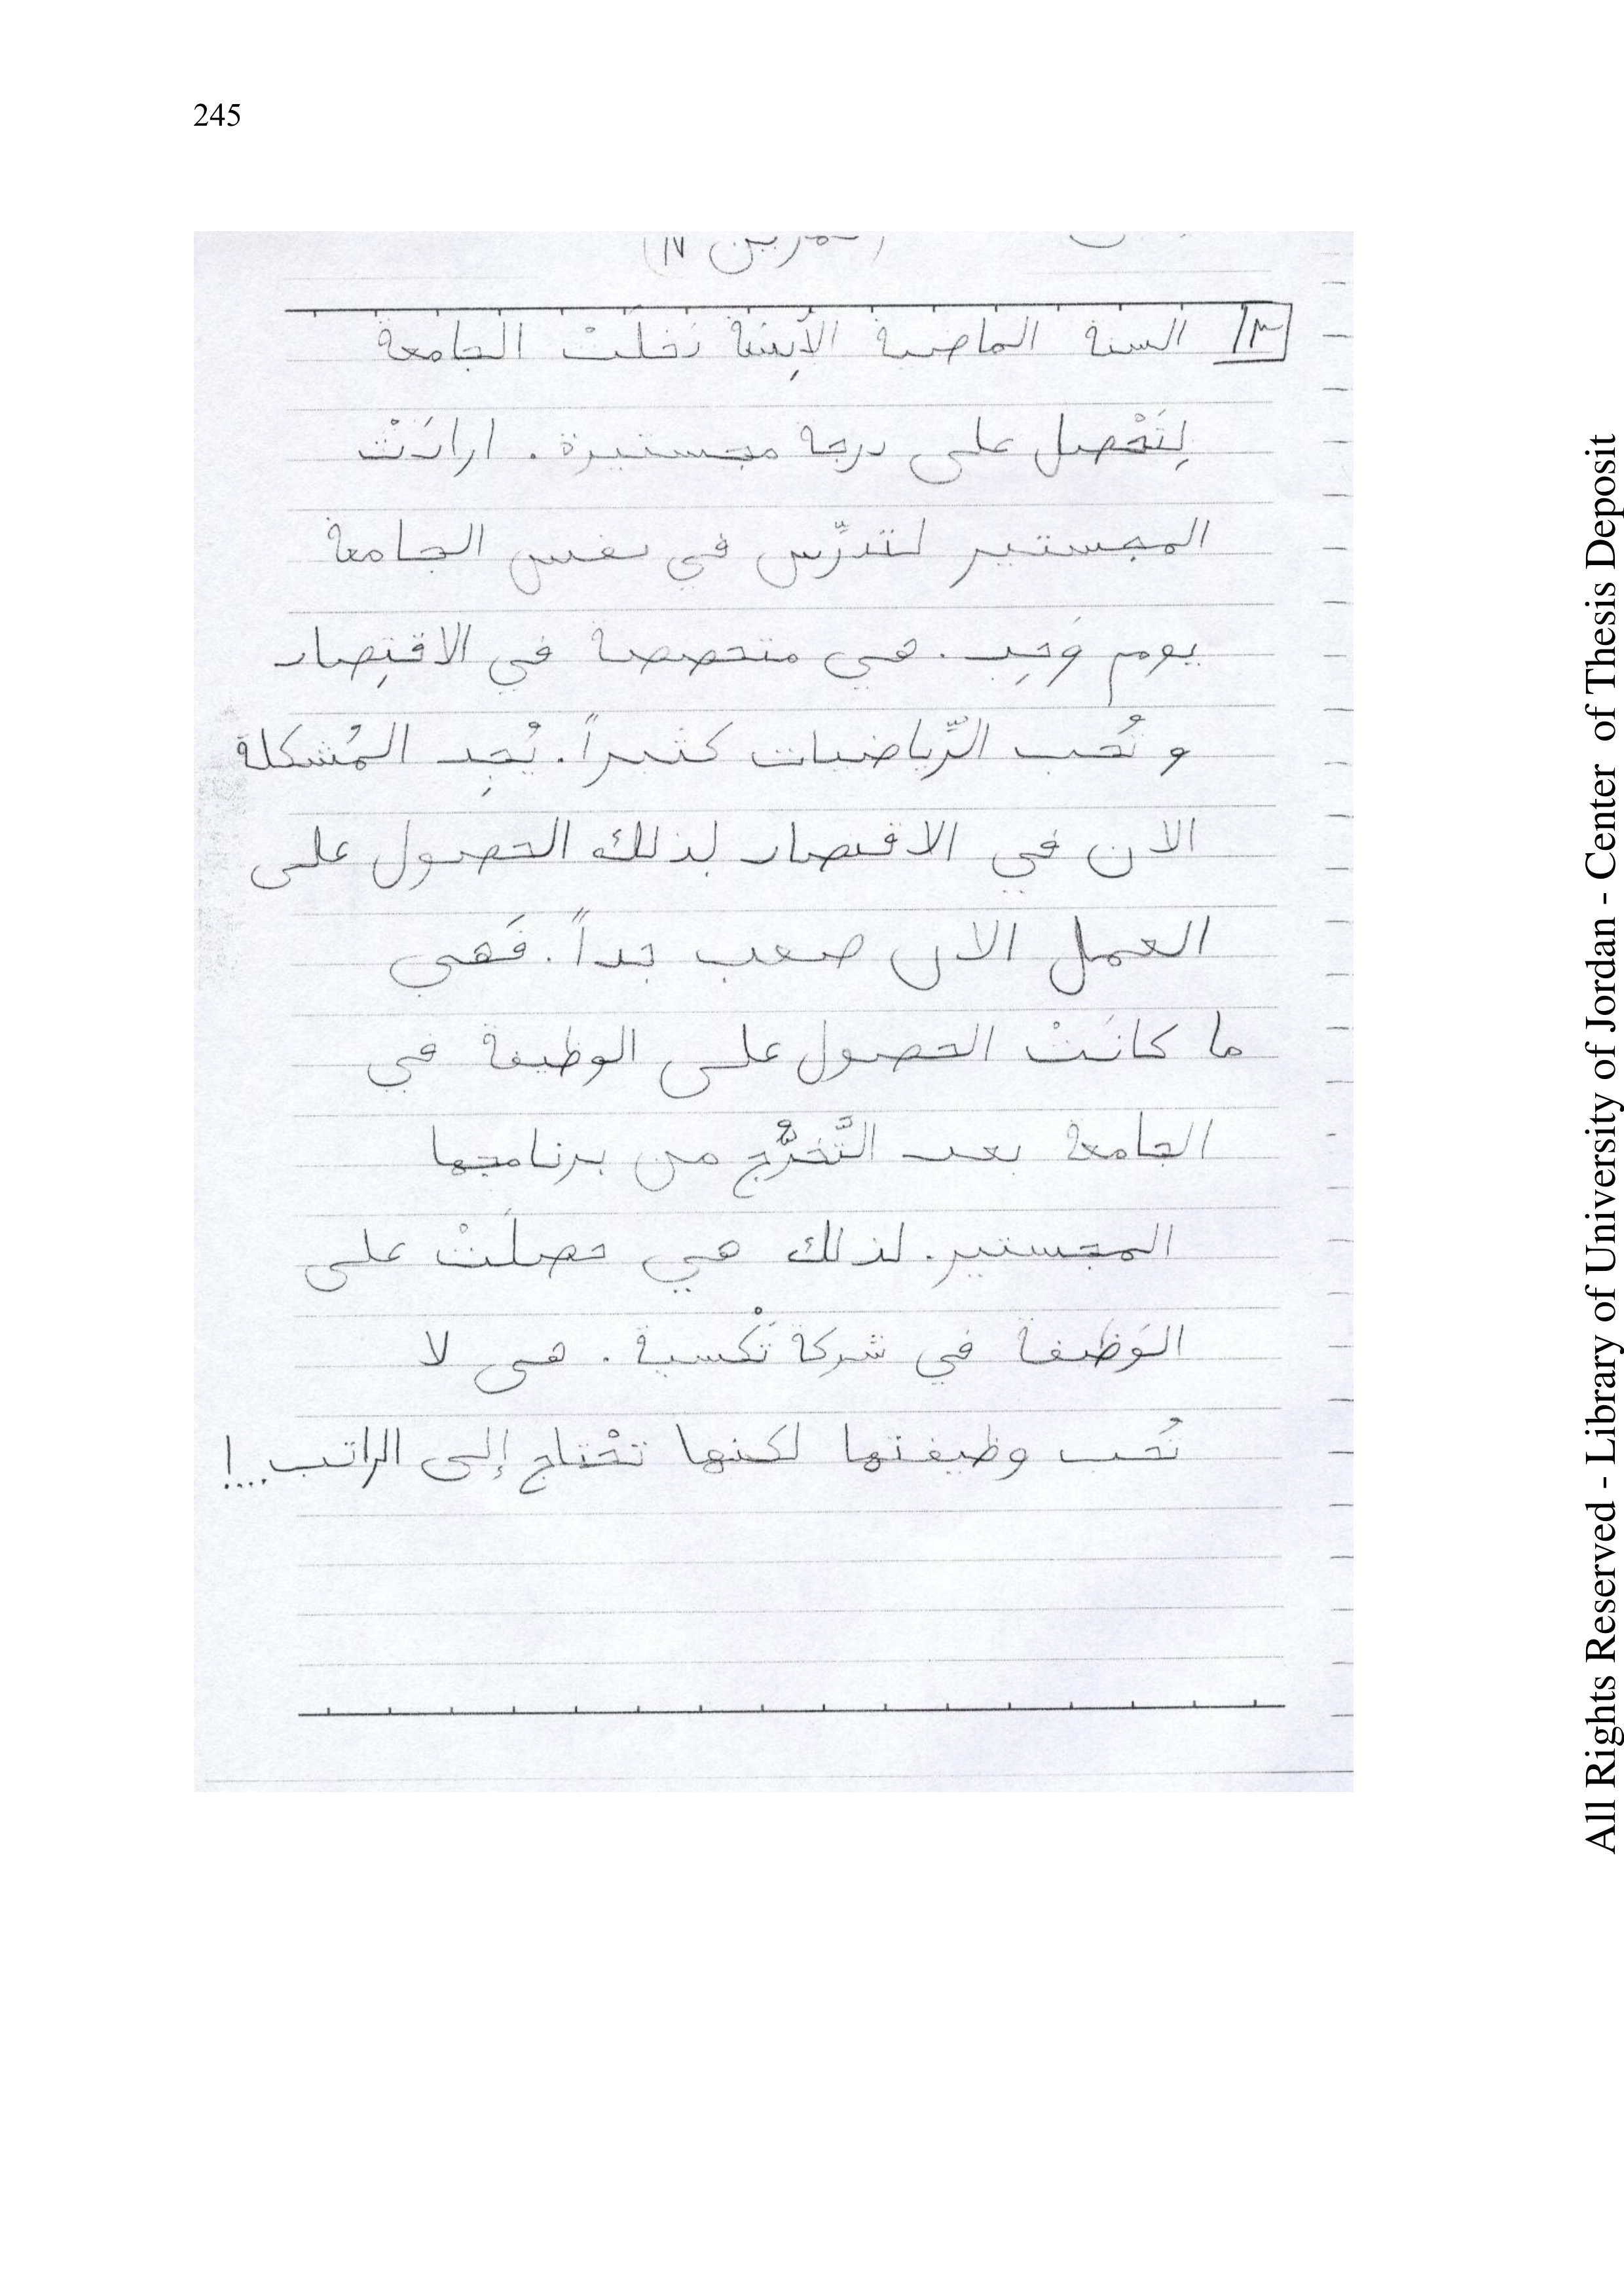 245
(تمرين ١٧)
٣ السنة الماضية الآنِسَة دَخلَتْ الجامعة
لِتَحْصل على درجة مجستيرة. ارادَتْ
المجستير لتدرِّس في نفس الجامعة
يوم وَحِد. هي متحصصة في الاقتِصاد
و تُحب الرِّياضيات كثيراً. يُجِد المُشكلة
الان في الاقتصاد لذلك الحصول على
العمل الان صعب جداً. فَهي
ما كانَتْ الحصول على الوظيفة في
الجامعة بعد التَّخرُّج من برنامجها
المجستير. لذلك هي حصلَتْ على
الوَظيفة في شركة تَكْسية. هي لا
تُحب وظيفتها لكنها تحْتاج إلى الراتب...!
All Rights Reserved - Library of University of Jordan - Center of Thesis Deposit